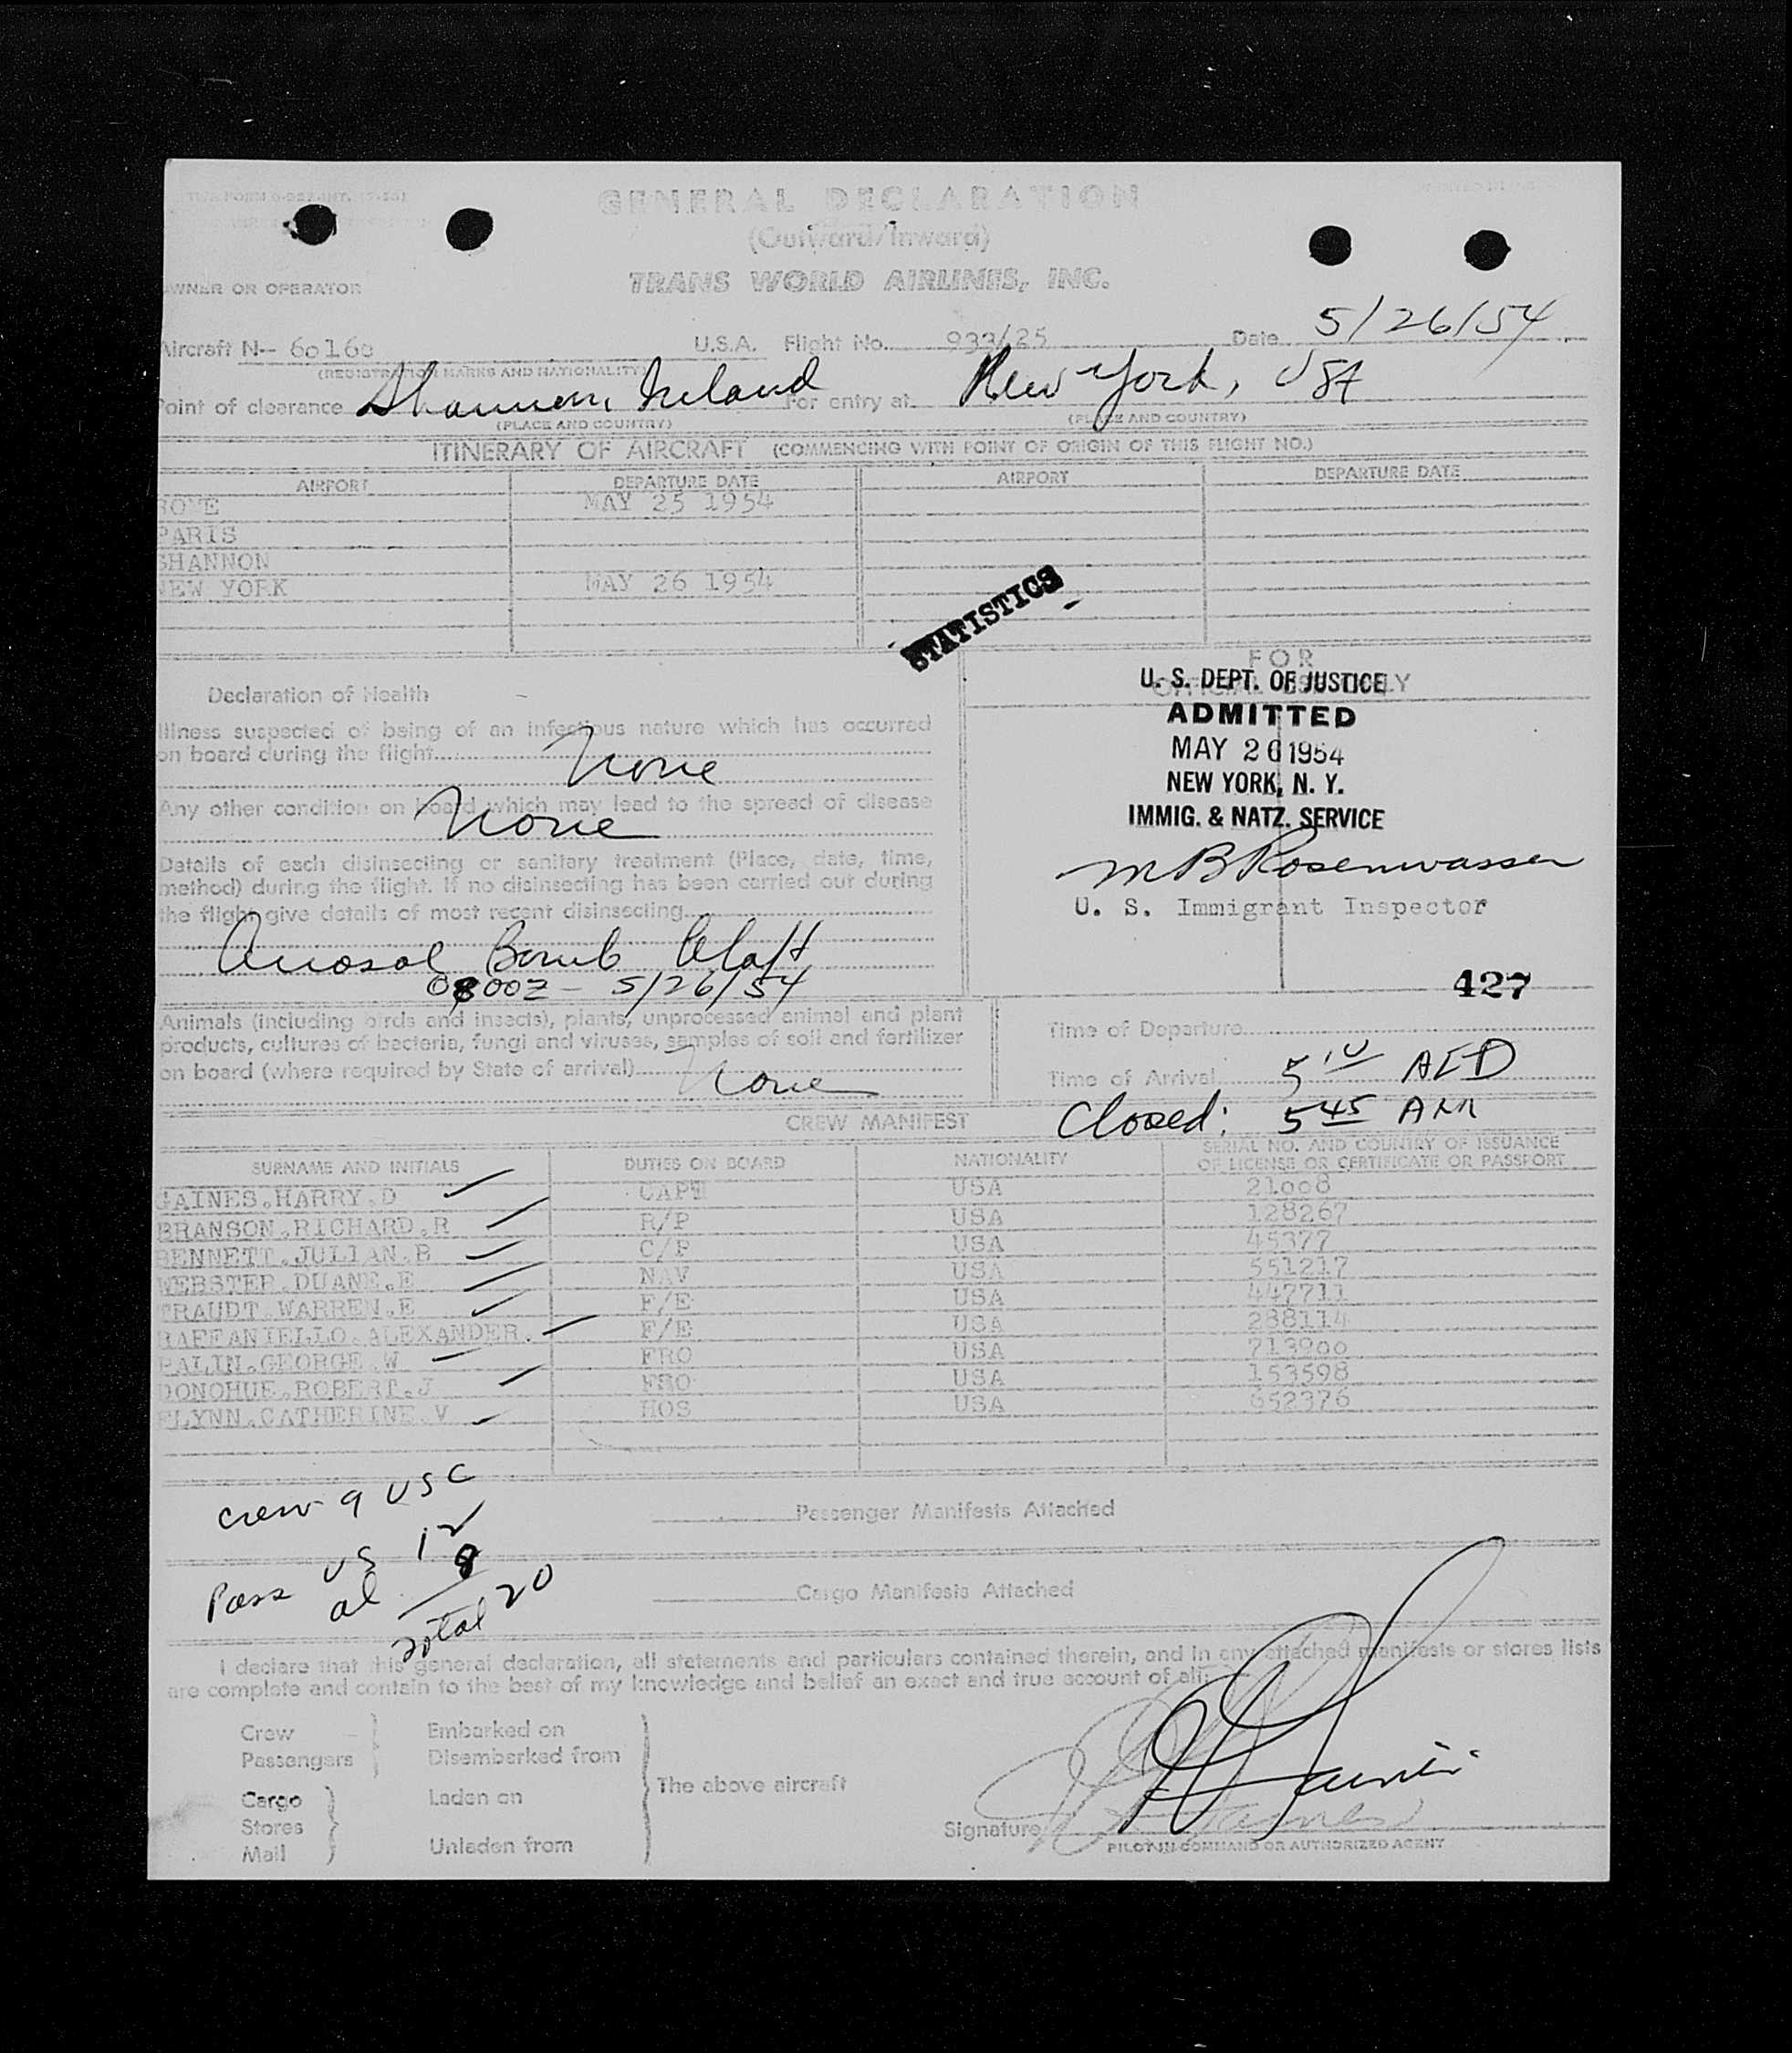 GENERAL DECLARATION
(Outward/Inward)
TRANS WORLD AIRLINES, INC.
WNER OR OPERATOR
Aircraft N-- 60160 U.S.A. Flight No. 933/25 Date 5/26/54
(REGISTRATION MARKS AND NATIONALITY)
Point of clearance Shannon, Ireland For entry at New York, USA
(PLACE AND COUNTRY) (PLACE AND COUNTRY)
ITINERARY OF AIRCRAFT (COMMENCING WITH POINT OF ORIGIN OF THIS FLIGHT NO.)
AIRPORT DEPARTURE DATE AIRPORT DEPARTURE DATE
MAY 25 1954
PARIS
SHANNON
NEW YORK MAY 26 1954
STATISTICS
FOR
U. S. DEPT. OF JUSTICE
ADMITTED
MAY 26 1954
NEW YORK, N. Y.
IMMIG. & NATZ. SERVICE
M B Rosenwasser
U. S. Immigrant Inspector
427
Declaration of Health
Illness suspected of being of an infectious nature which has occurred
on board during the flight None
Any other condition on board which may lead to the spread of disease
None
Details of each disinsecting or sanitary treatment (Place, date, time,
method) during the flight. If no disinsecting has been carried out during
the flight give details of most recent disinsecting
Bomb
0800Z - 5/26/54
Animals (including birds and insects), plants, unprocessed animal and plant
products, cultures of bacteria, fungi and viruses, samples of soil and fertilizer
on board (where required by State of arrival) None
Time of Departure
Time of Arrival 5 10
Closed: 5 45 AM
CREW MANIFEST
SURNAME AND INITIALS DUTIES ON BOARD NATIONALITY SERIAL NO. AND COUNTRY OF ISSUANCE
OF LICENSE OR CERTIFICATE OR PASSPORT
GAINES.HARRY.D CAPT USA 21008
BRANSON.RICHARD.R R/P USA 128267
BENNETT.JULIAN.B C/P USA 45377
WEBSTER.DUANE.E NAV USA 551217
TRAUDT.WARREN.E F/E USA 447711
RAFFANIELLO.ALEXANDER. F/E USA 288114
PALIN.GEORGE.W FRO USA 713900
DONOHUE.ROBERT.J USA 153598
FLYNN.CATHERINE.V HOS USA 652376
Crew 9 USC
Pass US 12
al 8
Total 20
Passenger Manifests Attached
Cargo Manifests Attached
I declare that this general declaration, all statements and particulars contained therein, and in any attached manifests or stores lists
are complete and contain to the best of my knowledge and belief an exact and true account of all:
Crew Embarked on
Passengers Disembarked from
The above aircraft
Cargo Laden on
Stores
Mail Unladen from
Signature H D Gaines
PILOT-IN-COMMAND OR AUTHORIZED AGENT